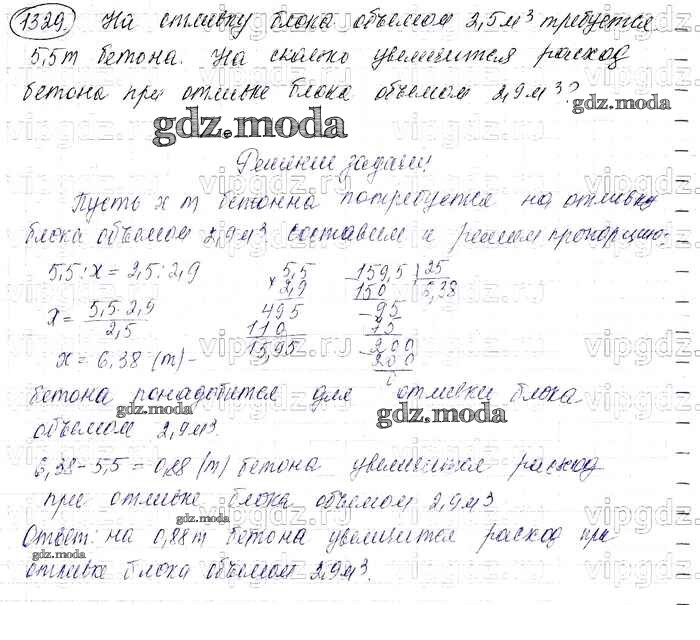 1329. На отливку блока объемом 2,5 м³ требуется
5,5т бетона. На сколько увеличится расход
бетона при отливке блока объемом 2,9 м³?
gdz.moda
gdz.moda
Решение задачи!
Пусть x т бетонна потребуется на отливку
блока объемом 2,9м³ составим и решим пропорцию:
5,5 : x = 2,5 : 2,9
x = 5,5 · 2,9 / 2,5
x = 6,38 (т) -
× 5,5
2,9
495
110
15,95
159,5 | 25
150 6,38
- 95
75
- 200
200
0
бетона понадобится для отливки блока
gdz.moda
gdz.moda
объемом 2,9м³.
6,38 - 5,5 = 0,88 (т) бетона увеличится расход
при отливке блока объемом 2,9м³
gdz.moda
Ответ: на 0,88т бетона увеличится расход при
gdz.moda
отливке блока объемом 2,9м³.
gdz.moda